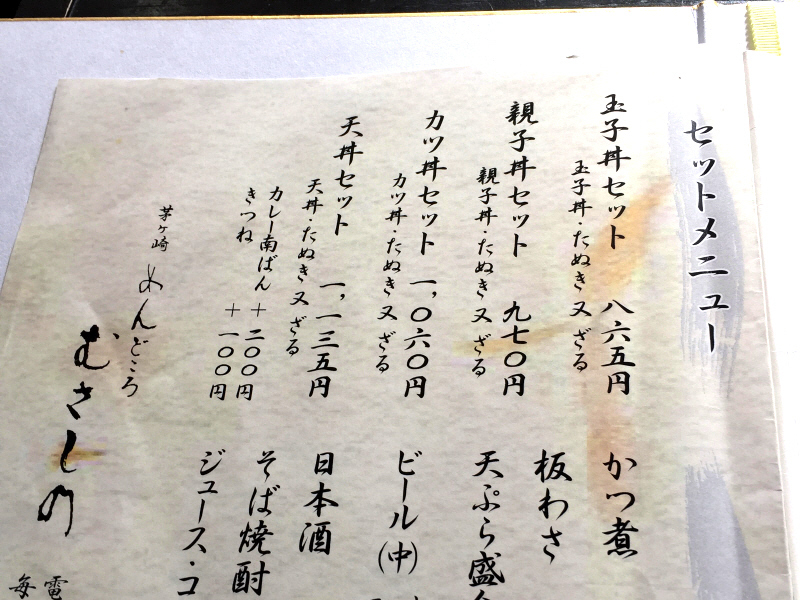 セットメニュー
玉子丼セット 八六五円
玉子丼・たぬき又ざる
親子丼セット 九七〇円
親子丼・たぬき又ざる
カツ丼セット 一,〇六〇円
カツ丼・たぬき又ざる
天丼セット 一,一三五円
天丼・たぬき又ざる
カレー南ばん +二〇〇円
きつね +一〇〇円
かつ煮
板わさ
天ぷら盛
ビール(中)
日本酒
そば焼酎
ジュース・コ
茅ヶ崎 めんどころ
むさしの
電
毎